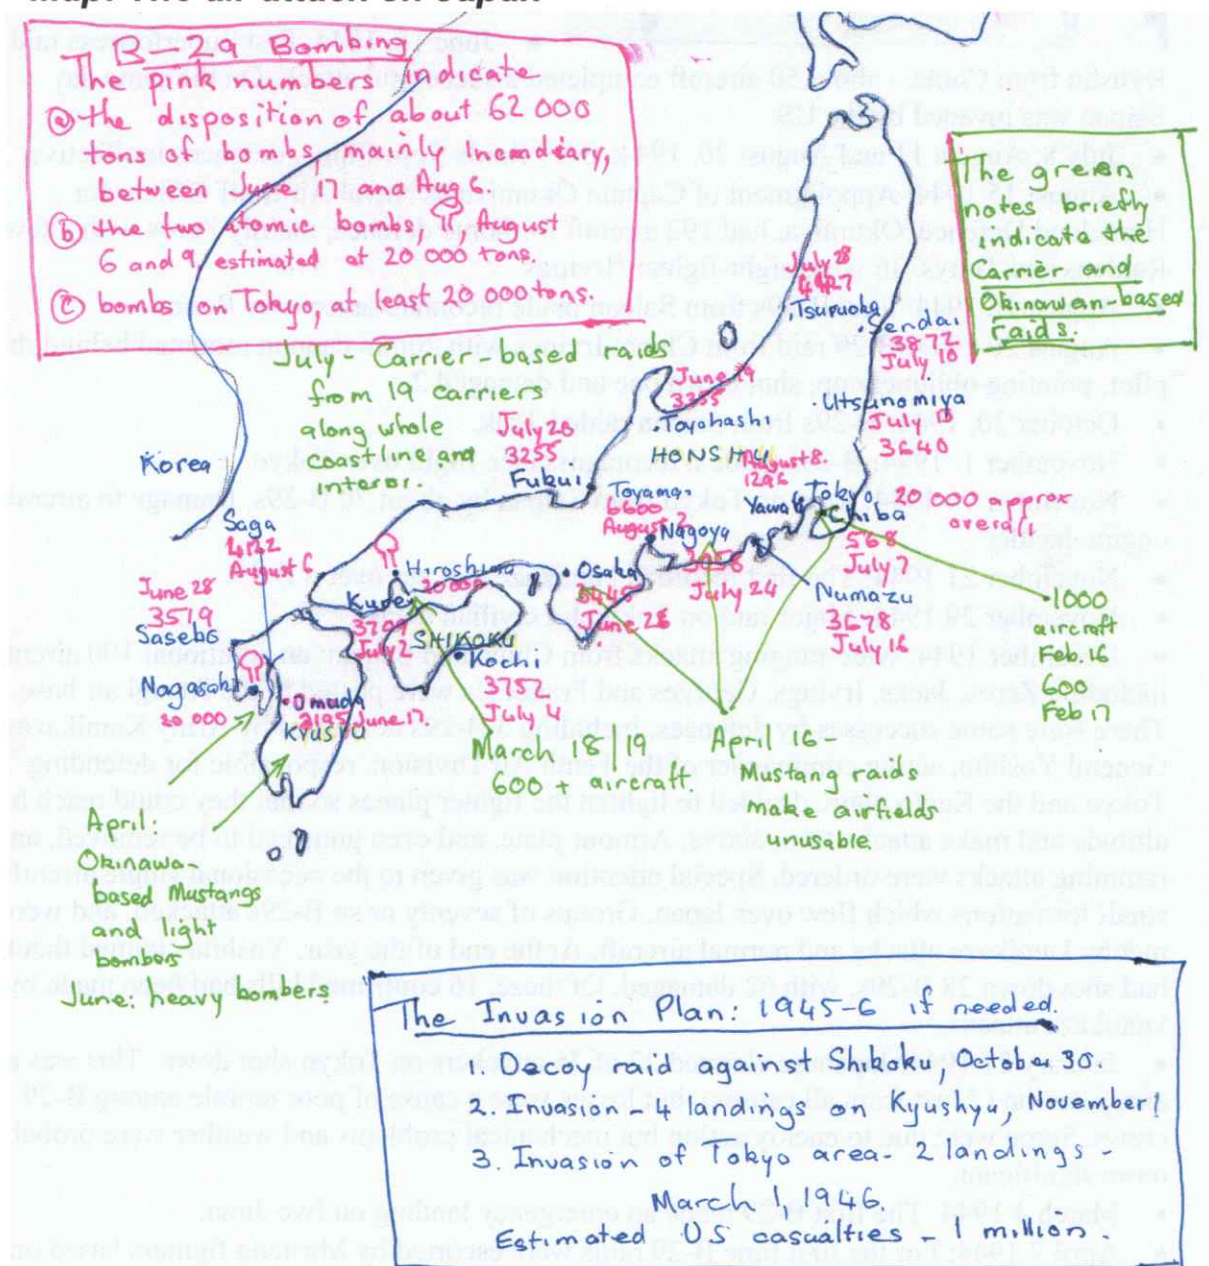 Map: The air attack on Japan
B-29 Bombing
The pink numbers indicate
(a) the disposition of about 62 000
tons of bombs, mainly incendiary,
between June 17 and Aug 6.
(b) the two atomic bombs, August
6 and 9, estimated at 20 000 tons.
(c) bombs on Tokyo, at least 20 000 tons.
The green
notes briefly
indicate the
Carrier and
Okinawan based
raids.
July - Carrier-based raids
from 19 carriers
along whole
coastline and
interior.
Korea
July 28
4427
Tsuruoka
Sendai
3872
July 10
Utsunomiya
July 13
3640
June 19
3355
Toyohashi
HONSHU
July 20
3255
Fukui
Toyama
6600
August 2
August 8.
1296
Yawata
Tokyo
20 000 approx
overall
Chiba
568
July 7
Nagoya
July 24
Numazu
3628
July 16
1000
aircraft
Feb 16
600
Feb 17
Saga
4122
August 6
June 28
3519
Sasebo
Hiroshima
20000
Kure
July 2
Osaka
June 26
SHIKOKU
Kochi
3757
July 4
Nagasaki
20 000
Omuda
2193 June 17.
KYUSHU
March 18/19
600 + aircraft.
April 16-
Mustang raids
make airfields
unusable
April:
Okinawa-
based Mustangs
and light
bombers
June: heavy bombers
The Invasion Plan: 1945-6 if needed
1. Decoy raid against Shikoku, October 30.
2. Invasion - 4 landings on Kyushyu, November 1
3. Invasion of Tokyo area - 2 landings -
March 1, 1946
Estimated US casualties - 1 million.